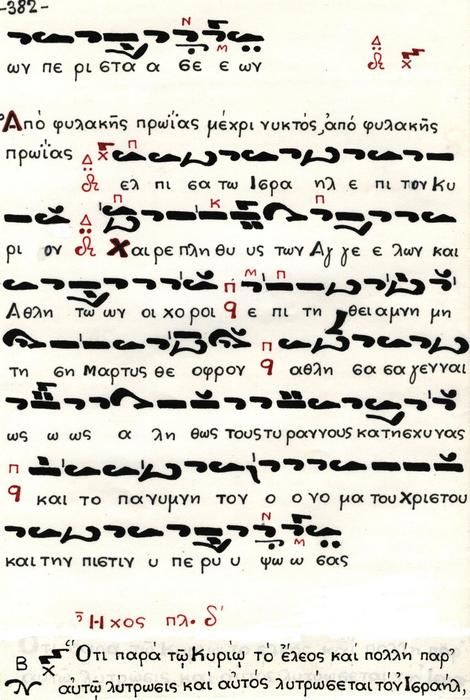 -382-
ων πε ρι στα α σε ε ων
Ἀπό φυλακῆς πρωΐας μέχρι νυκτός, ἀπό φυλακῆς
πρωΐας ελ πι σα τω Ισρα ηλ ε πι τον Κυ
ρι ον Χαι ρε πλη θυ υς των Αγ γε ε λων και
Αθλη τω ων οι χο ροι ε πι τη θει α μνη μη
τη ση Μαρτυς θε οφρον αθλη σα σα γενναι
ως ω ως α λη θως τους τυ ραννους κατησχυνας
και το παν υμνη τον ο ο νο μα του Χριστου
και την πιστιν υ πε ρυ υ ψω ω σας
Ἦχος πλ. δ΄
Ὅτι παρά τῷ Κυρίῳ τό ἔλεος καί πολλή παρ'
αὐτῷ λύτρωσις καί αὐτός λυτρώσεται τόν Ἰσραήλ.